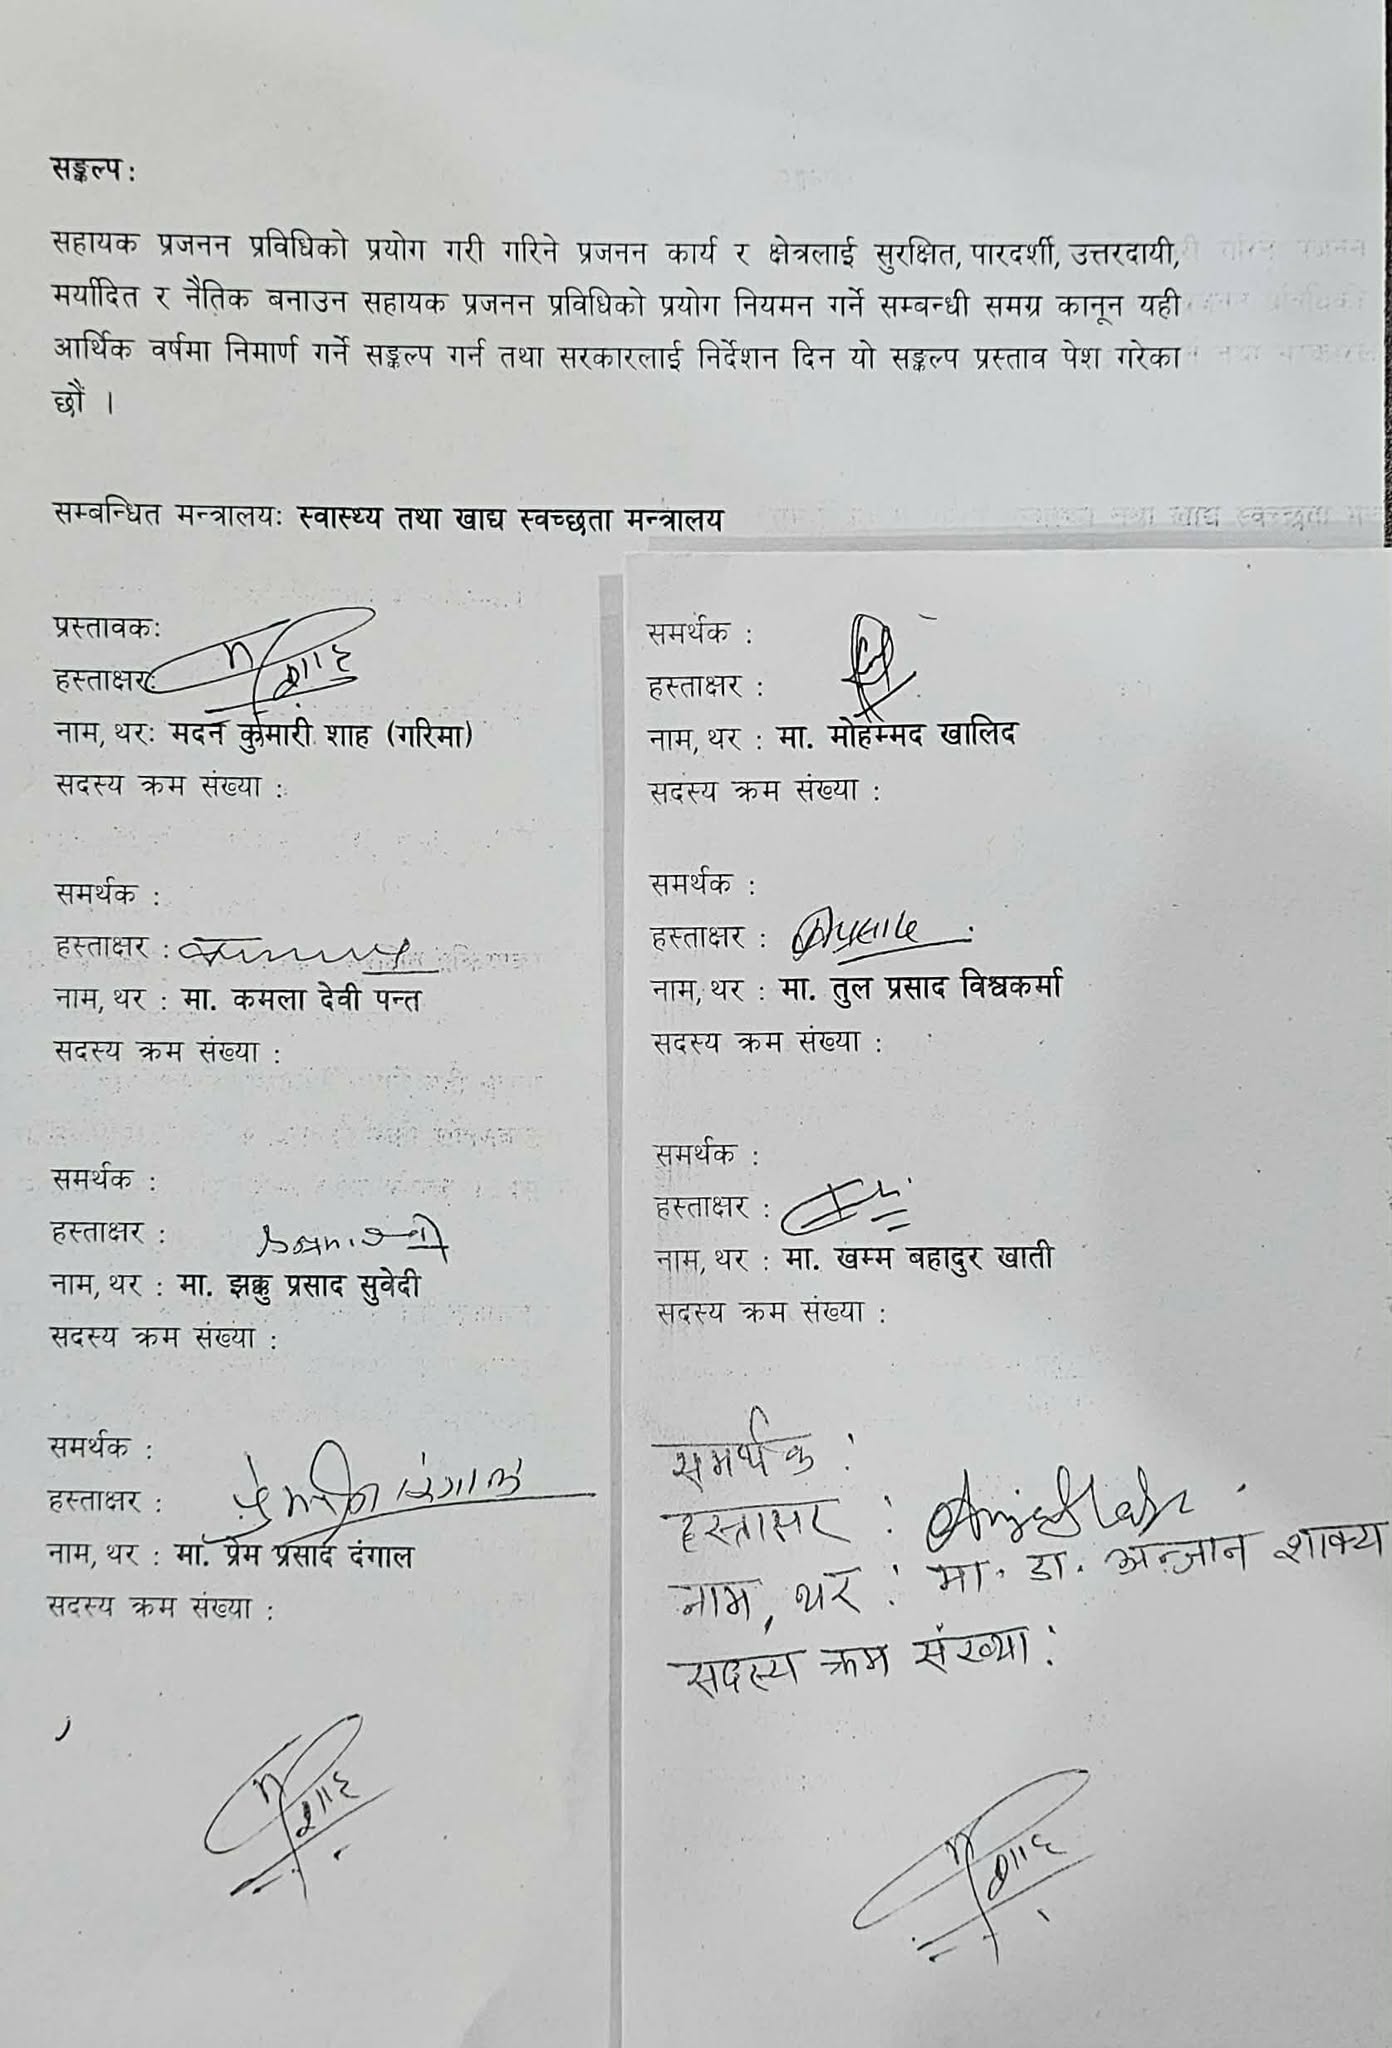 सङ्कल्प:
सहायक प्रजनन प्रविधिको प्रयोग गरी गरिने प्रजनन कार्य र क्षेत्रलाई सुरक्षित, पारदर्शी, उत्तरदायी,
मर्यादित र नैतिक बनाउन सहायक प्रजनन प्रविधिको प्रयोग नियमन गर्ने सम्बन्धी समग्र कानून यही
आर्थिक वर्षमा निमार्ण गर्ने सङ्कल्प गर्न तथा सरकारलाई निर्देशन दिन यो सङ्कल्प प्रस्ताव पेश गरेका
छौं ।
सम्बन्धित मन्त्रालय: स्वास्थ्य तथा खाद्य स्वच्छता मन्त्रालय
प्रस्तावक:
हस्ताक्षर: म शाह
नाम, थर: मदन कुमारी शाह (गरिमा)
सदस्य क्रम संख्या :
समर्थक :
हस्ताक्षर :
नाम, थर : मा. कमला देवी पन्त
सदस्य क्रम संख्या :
समर्थक :
हस्ताक्षर :
नाम, थर : मा. झक्कु प्रसाद सुवेदी
सदस्य क्रम संख्या :
समर्थक :
हस्ताक्षर :
नाम, थर : मा. प्रेम प्रसाद दंगाल
सदस्य क्रम संख्या :
म शाह
समर्थक :
हस्ताक्षर :
नाम, थर : मा. मोहम्मद खालिद
सदस्य क्रम संख्या :
समर्थक :
हस्ताक्षर :
नाम, थर : मा. तुल प्रसाद विश्वकर्मा
सदस्य क्रम संख्या :
समर्थक :
हस्ताक्षर :
नाम, थर : मा. खम्म बहादुर खाती
सदस्य क्रम संख्या :
समर्थक :
हस्ताक्षर :
नाम, थर : मा. डा. अन्जान शाक्य
सदस्य क्रम संख्या :
म शाह